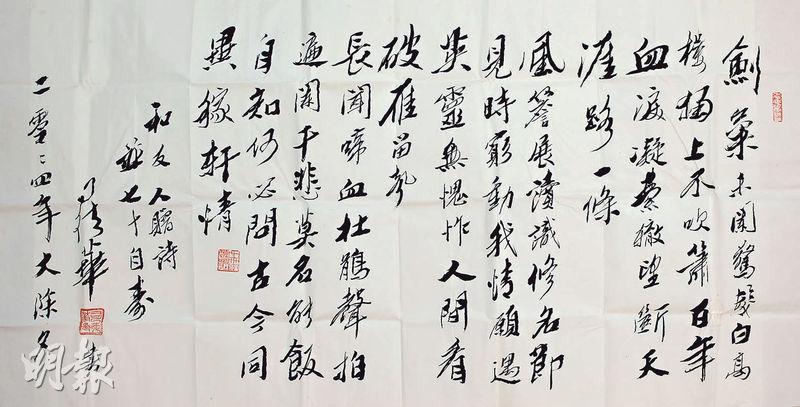 劍氣未聞驚髮白高
樓獨上不吹簫百年
血淚凝望斷天
涯路一條
風簷展讀識修名節
見時窮動我情願遇
英靈無愧怍人間看
破雁留聲
長聞啼血杜鵑聲拍
遍闌干悲莫名能飯
自知何必問古今同
異稼軒情
和友人賜詩
並七十自壽
司徒華
二零零四年大除夕
明報